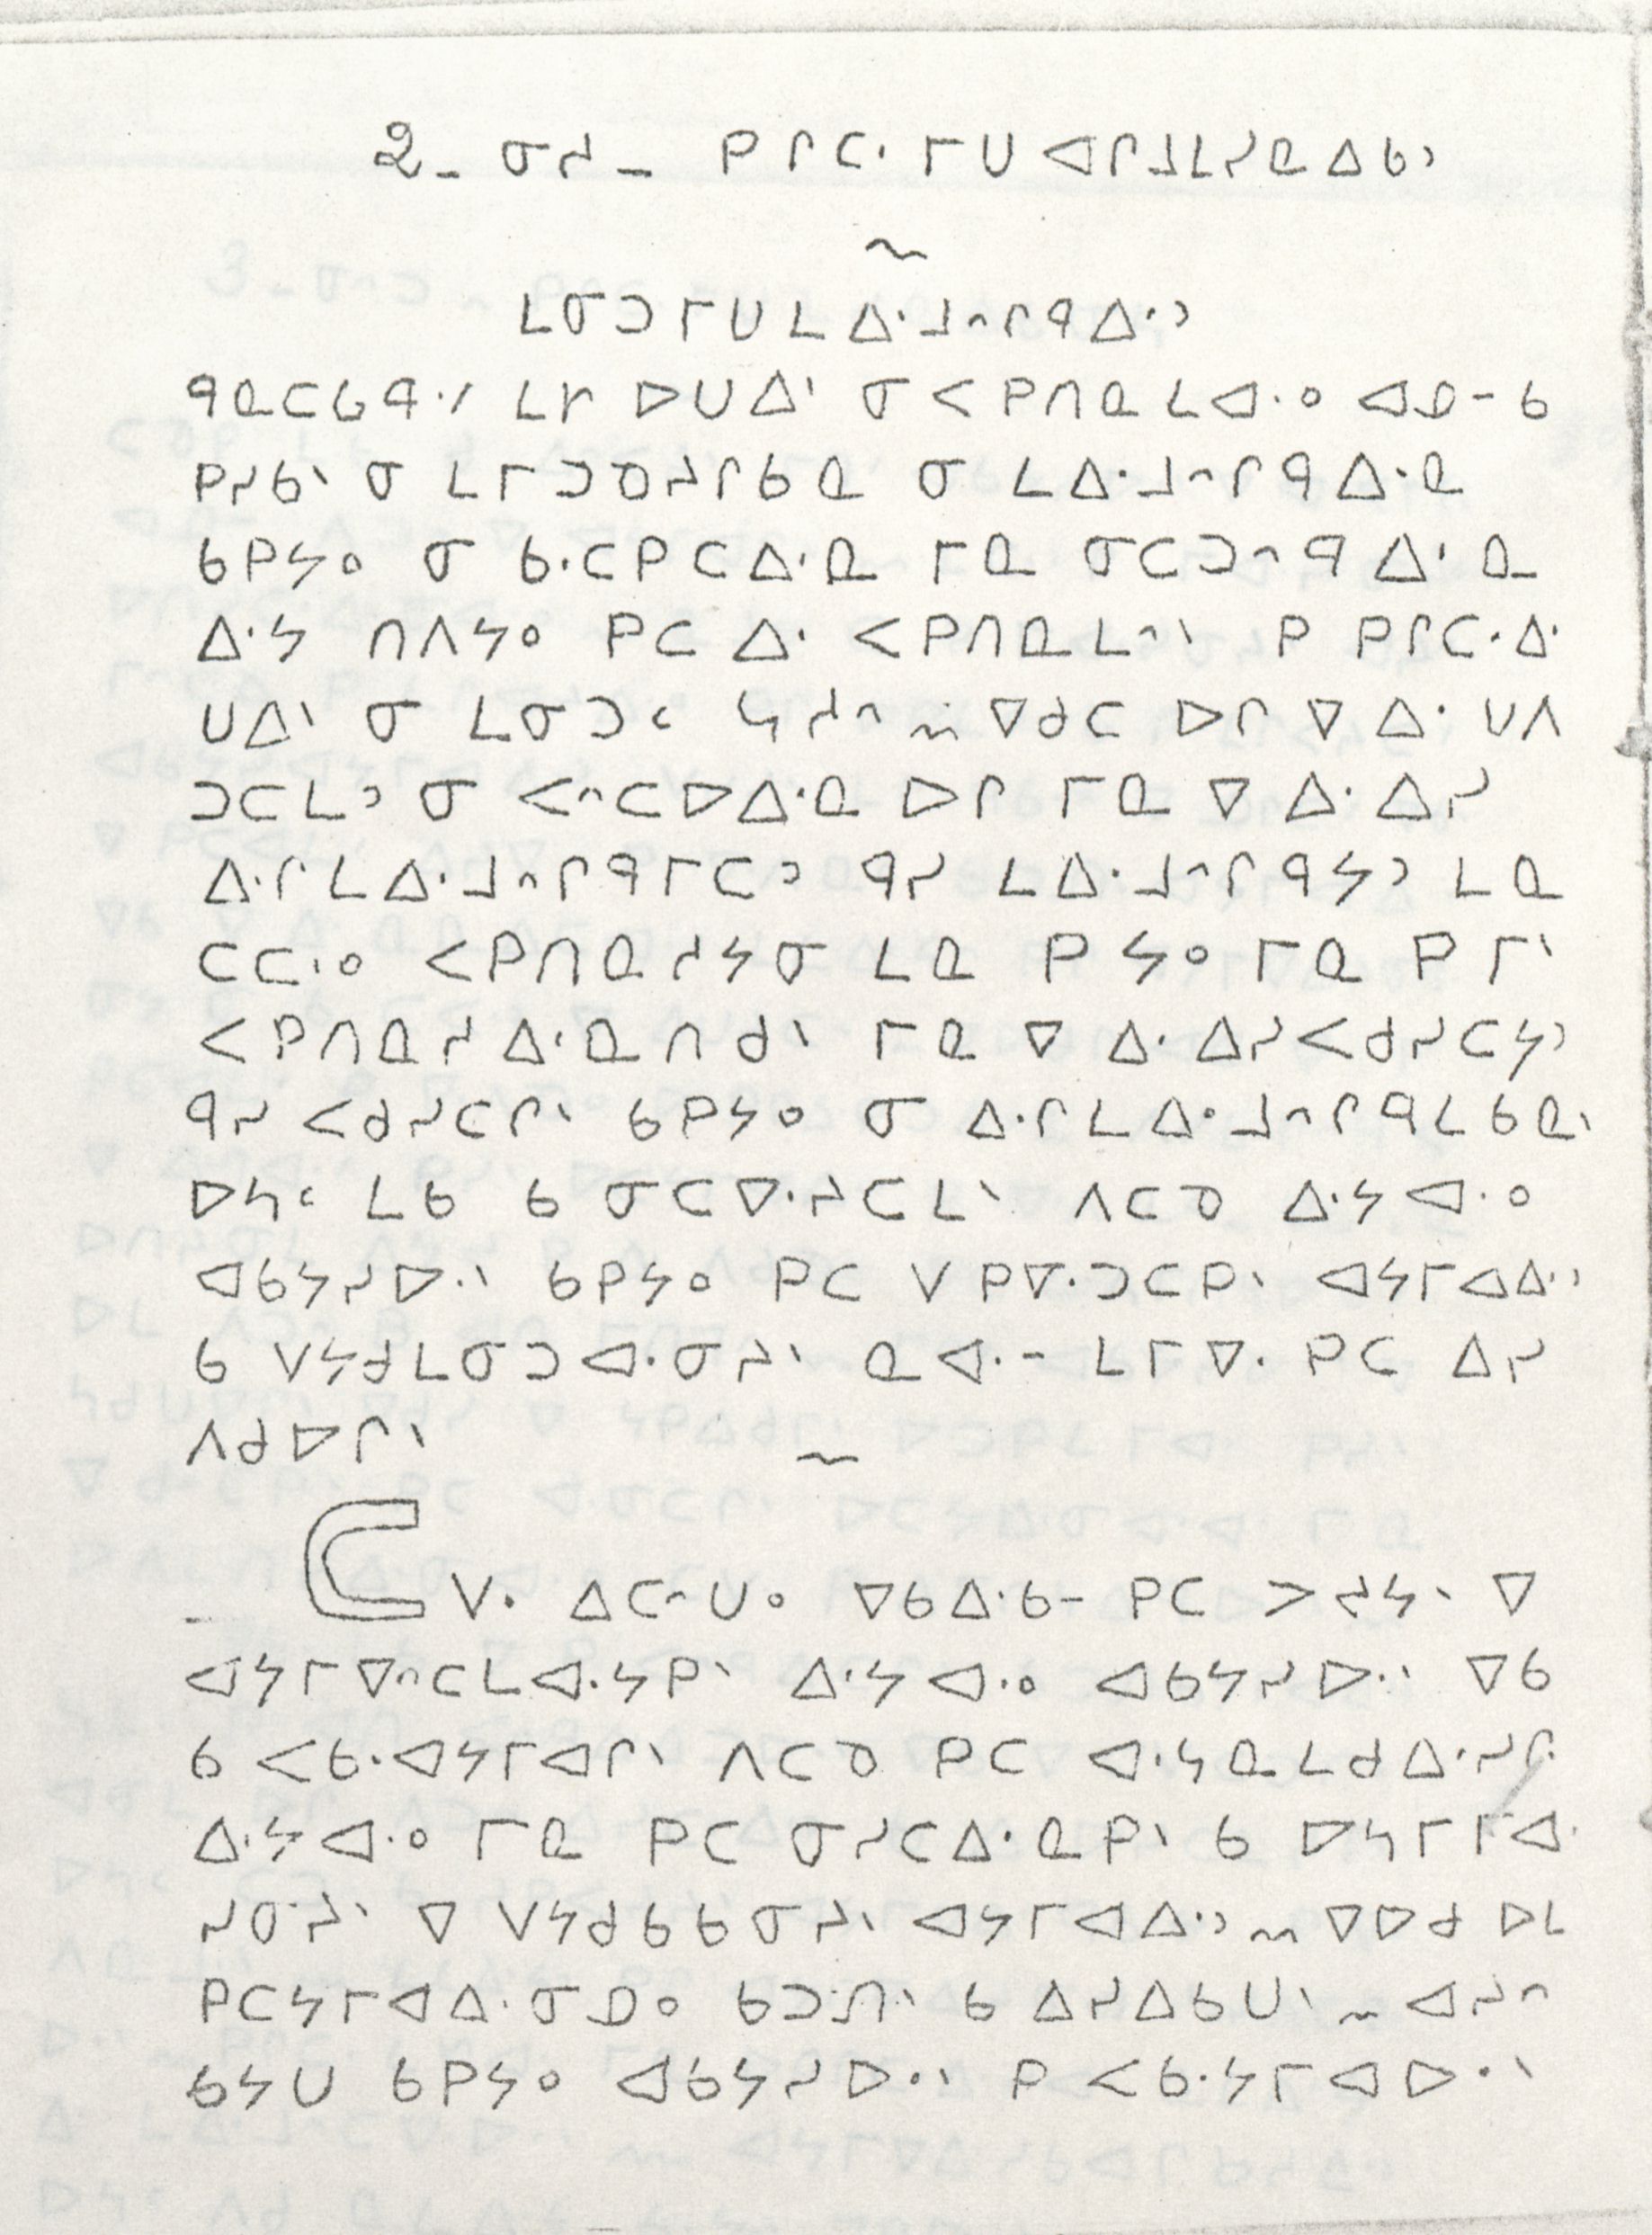 2- ᓂᓱ- ᑭᒋᑕᐧᒥᑌ ᐊᒋᒧᒪᓯᓇᐃᑲᐣ
~
ᒪᓂᑐᒥᑌ ᒪᐃᐧᒧᐢᒋᑫᐃᐧᐣ
ᑫᓇᑕᔕᑫᐧᐟ ᒪᒋ ᐅᑌᐃᐠ ᓂ ᐸᑭᑎᓇᒪᐊᐧᐤ ᐊᓄᐨ ᑲ
ᑭᓯᑲᐠ ᓂ ᒪᒥᑐᓀᔨᒋᑲᓇ ᓂ ᒪᐃᐧᒧᐢᒋᑫᐃᐧᓇ
ᑲᑭᔭᐤ ᓂ ᑲᐧᑕᑭᑕᐃᐧᓇ ᒥᓇ ᓂᑕᑐᐢᑫᐃᐧᓇ
ᐃᐧᔭ ᑎᐱᔭᐤ ᑭᑕ ᐃᐧ ᐸᑭᑎᓇᒪᐢᐠ ᑭ ᑭᒋᑕᐧᐃᐧ
ᑌᐃᐠ ᓂ ᒪᓂᑐᑦ ᓴᓱᐢ ~ ᐁᑯᑕ ᐅᒋ ᐁ ᐃᐧ ᑌᐱ
ᑐᑕᒪᐣ ᓂ ᐸᐢᑕᐅᐃᐧᓇ ᐅᒋ ᒥᓇ ᐁ ᐃᐧ ᐃᓯ
ᐃᐧᒋᒪᐃᐧᒧᐢᒋᑫᒥᑕᐣ ᑫᓯ ᒪᐃᐧᒧᐢᒋᑫᔭᐣ ᒪᓇ
ᑕᑕᐧᐤ ᐸᑭᑎᓇᓱᔭᓂ ᒪᓇ ᑭ ᔭᐤ ᒥᓇ ᑭ ᒥᐠ
ᐸᑭᑎᓇᓱᐃᐧᓇᑎᑯᐠ ᒥᓇ ᐁ ᐃᐧ ᐃᓯᐸᑯᓯᑕᔭᐣ
ᑫᓯ ᐸᑯᓯᑕᒋᐠ ᑲᑭᔭᐤ ᓂ ᐃᐧᒋᒪᐃᐧᒧᐢᒋᑫᒪᑲᓇᐠ
ᐅᓴᑦ ᒪᑲ ᑲ ᓂᑕᐁᐧᔨᑕᒪᐠ ᐱᑕᓀ ᐃᐧᔭᐊᐧᐤ
ᐊᑲᔭᓯᐅᐧᐠ ᑲᑭᔭᐤ ᑭᑕ ᐯ ᑭᐁᐧᑐᑕᑭᐠ ᐊᔭᒥᐊᐃᐧᐣ
ᑲ ᐯᔭᑯᒪᓂᑐᐊᐧᓂᔨᐠ ᓇᐊᐧᐨ ᒪᒥᐁᐧ ᑭᑕ ᐃᓯ
ᐱᑯᐅᒋᐠ
~
ᑕᐯᐧ ᐃᑕᐢᑌᐤ ᐁᑲᐃᐧᑲᐨ ᑭᑕ ᐳᓱᔭᐠ ᐁ
ᐊᔭᒥᐁᐢᑕᒪᐊᐧᔭᑭᐠ ᐃᐧᔭᐊᐧᐤ ᐊᑲᔭᓯᐅᐧᐠ ᐁᑲ
ᑲ ᐸᑲᐧᐊᔭᒥᐊᒋᐠ ᐱᑕᓀ ᑭᑕ ᐊᐧᔭᓇᒪᑯᐃᐧᓯᒋᐠ
ᐃᐧᔭᐊᐧᐤ ᒥᓇ ᑭᑕ ᓂᓯᑕᐃᐧᓇᑭᐠ ᑲ ᐅᓴᒥᒥᐊᐧ
ᓯᓂᔨᐠ ᐁ ᐯᔭᑯᑲᑲᓂᔨᐠ ᐊᔭᒥᐊᐃᐧᐣ ~ ᐁᐅᑯ ᐅᒪ
ᑭᑕᔭᒥᐊᐃᐧᓂᓄᐤ ᑲᑐᓕᐠ ᑲ ᐃᓯᐃᑲᑌᐠ ~ ᐊᔨᐢ
ᑲᔭᑌ ᑲᑭᔭᐤ ᐊᑲᔭᓯᐅᐧᐠ ᑭ ᐸᑲᐧᔭᒥᐊᐅᐧᐠ